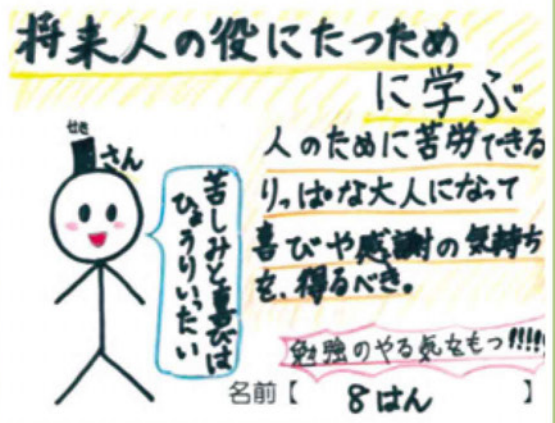 将来人の役にたつため
に学ぶ
せき
さん
苦しみと喜びは
ひょうりいったい
人のために苦労できる
りっぱな大人になって
喜びや感謝の気持ち
を、得るべき。
勉強のやる気をもつ!!!!
名前【 8はん 】